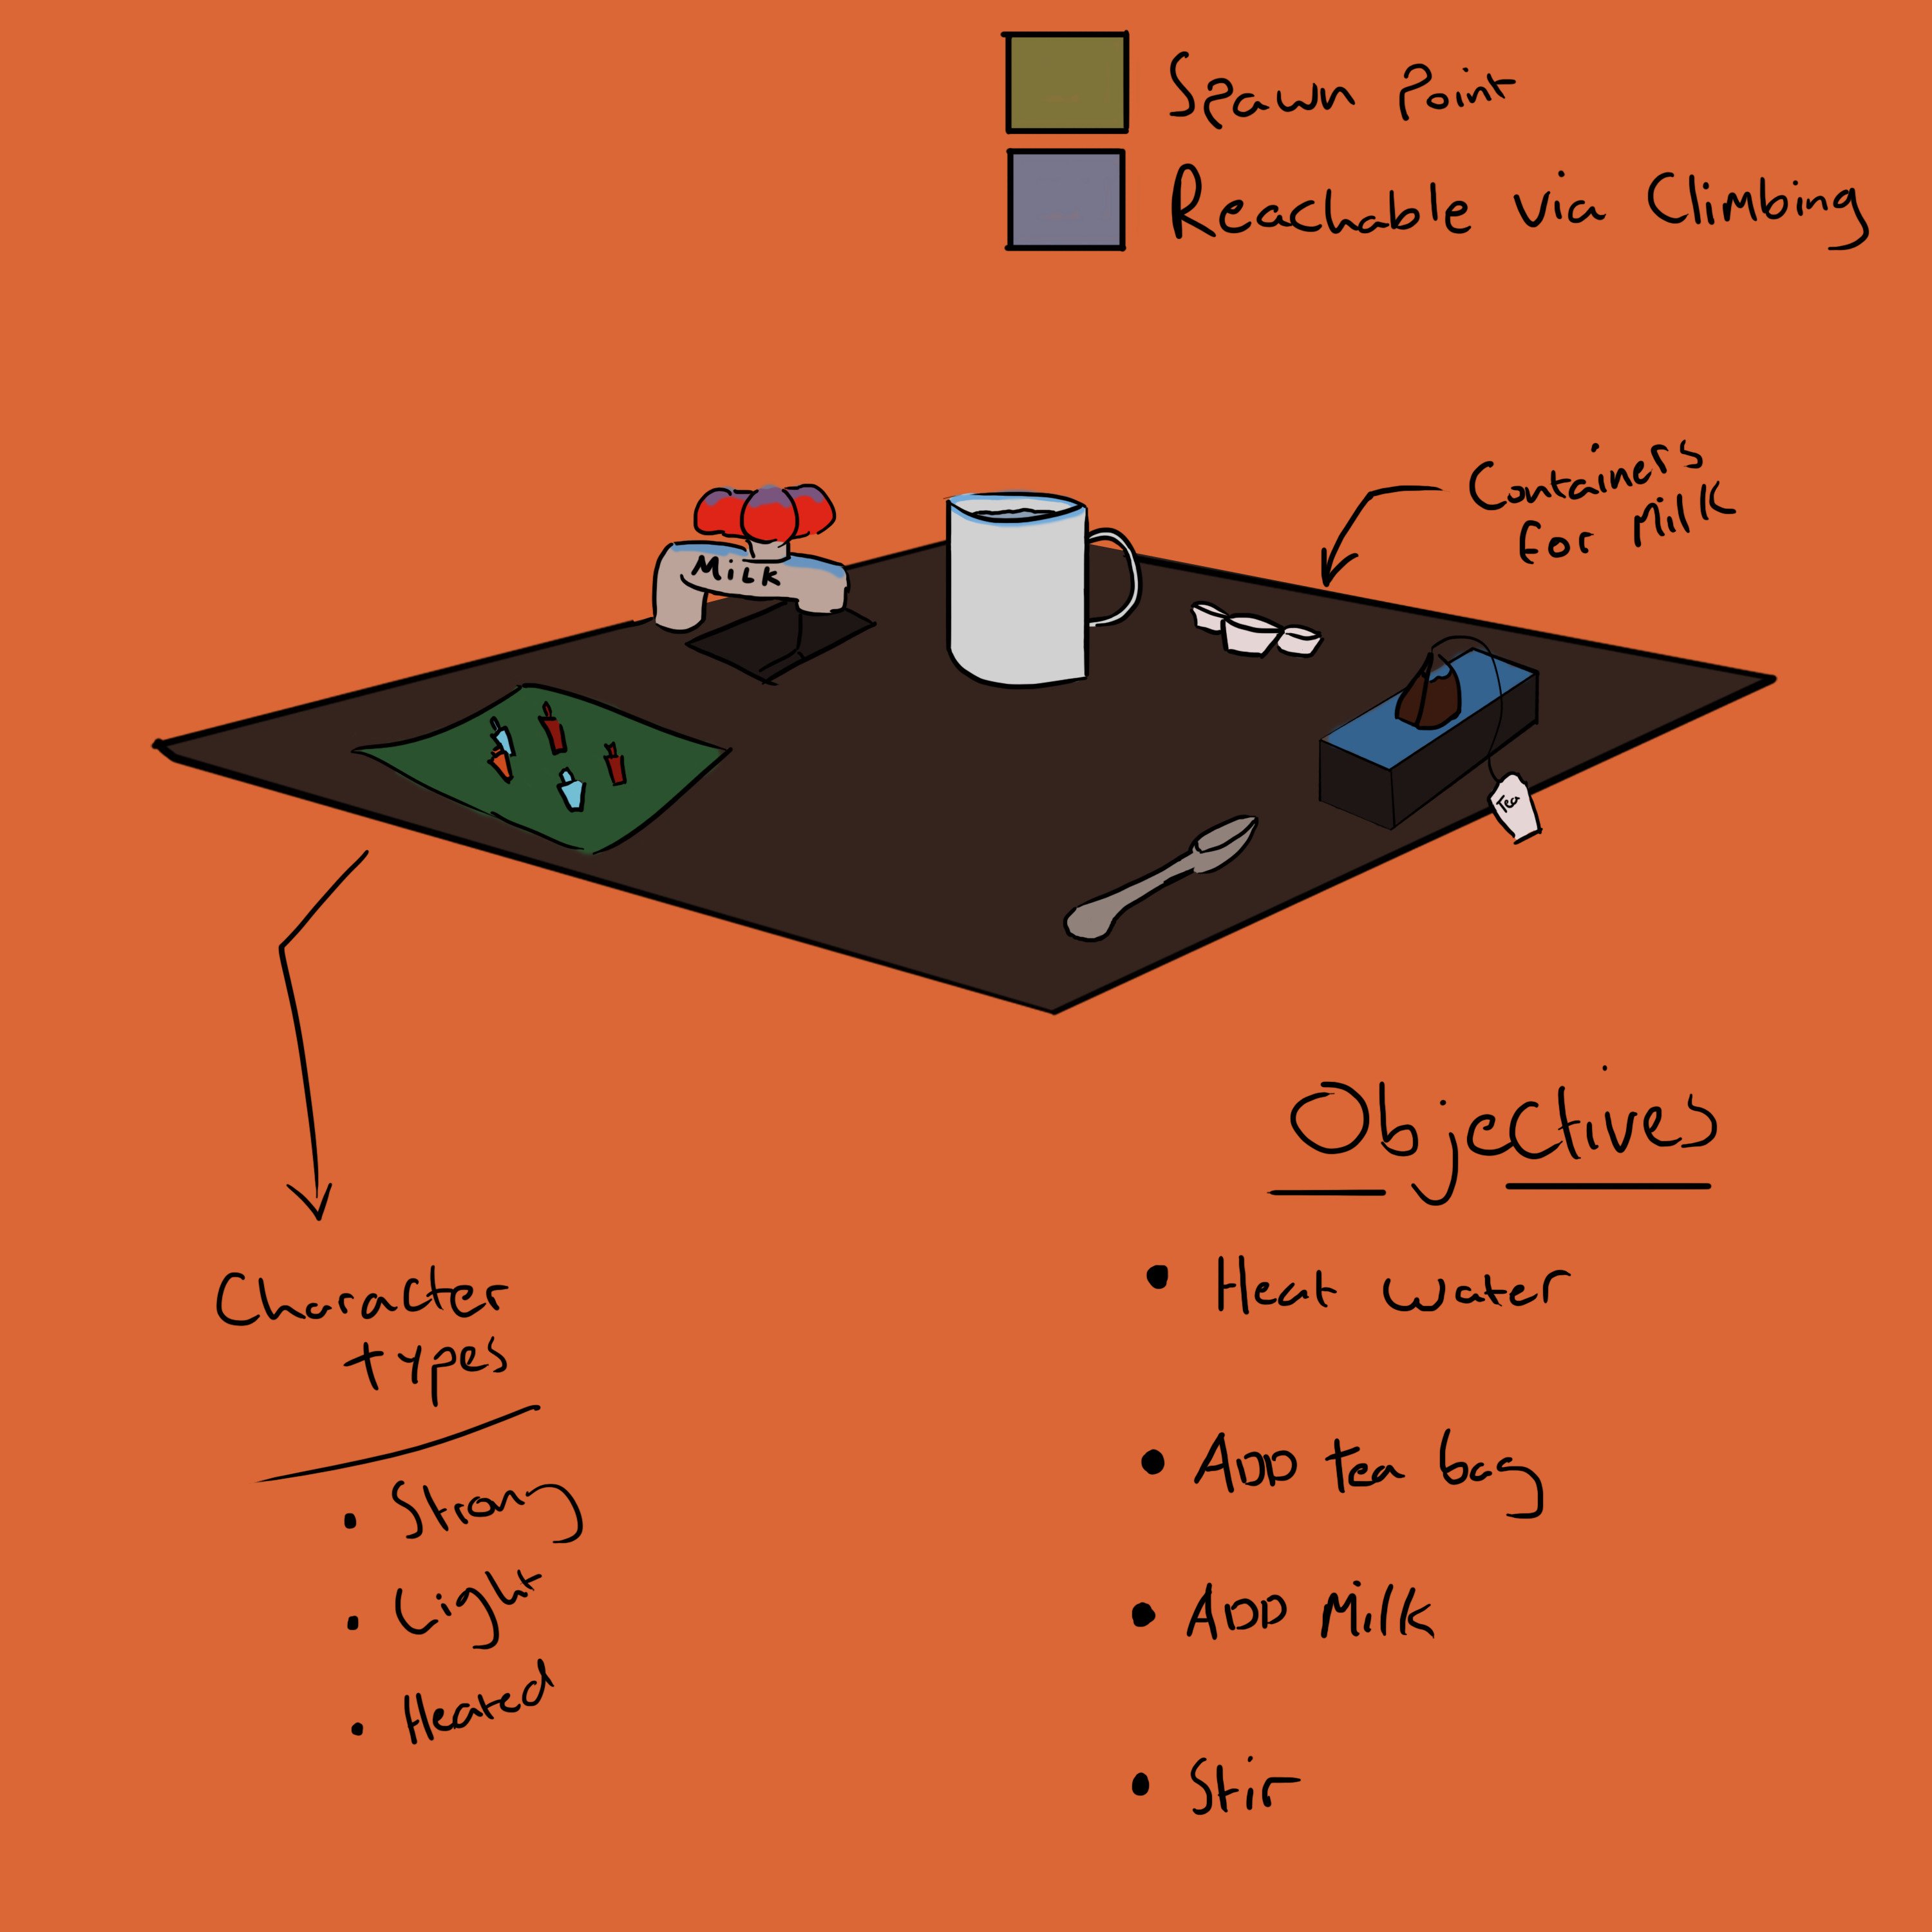 Spawn Point
Reachable via Climbing
Containers
for milk
MiLK
Tea
Objectives
Character
types
• Strong
• Light
• Heated
• Heat water
• ADD tea bag
• ADD Milk
• Stir